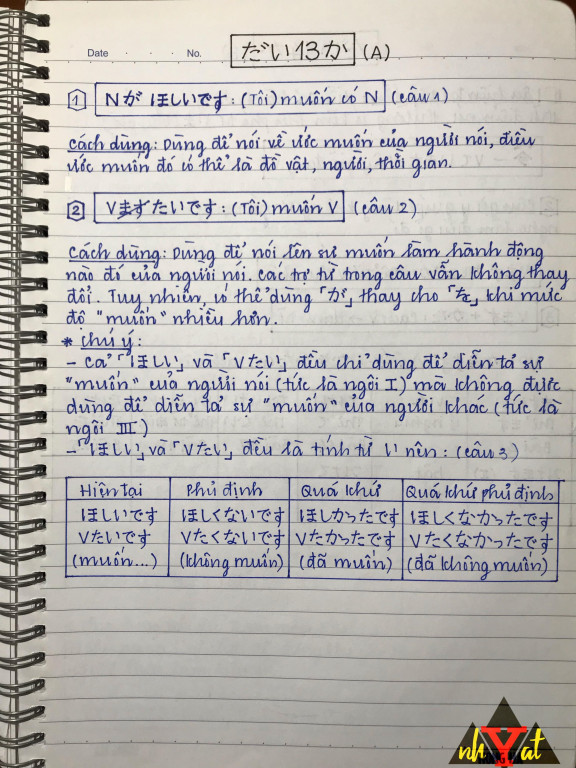 Date . . . No.
だい13か (A)
1 Nが ほしいです: (Tôi) muốn có N (câu 1)
Cách dùng: Dùng để nói về ước muốn của người nói, điều
ước muốn đó có thể là đồ vật, người, thời gian.
2 Vますたいです: (Tôi) muốn V (câu 2)
Cách dùng: Dùng để nói lên sự muốn làm hành động
nào đó của người nói. Các trợ từ trong câu vẫn không thay
đổi. Tuy nhiên, có thể dùng 「が」 thay cho 「を」 khi mức
độ "muốn" nhiều hơn.
* Chú ý:
- Cả 「ほしい」 và 「Vたい」 đều chỉ dùng để diễn tả sự
"muốn" của người nói (tức là ngôi I) mà không được
dùng để diễn tả sự "muốn" của người khác (tức là
ngôi III)
-「ほしい」 và 「Vたい」 đều là tính từ i nên: (câu 3)
Hiện tại Phủ định Quá khứ Quá khứ phủ định
ほしいです ほしくないです ほしかったです ほしくなかったです
Vたいです Vたくないです Vたかったです Vたくなかったです
(muốn...) (không muốn) (đã muốn) (đã không muốn)